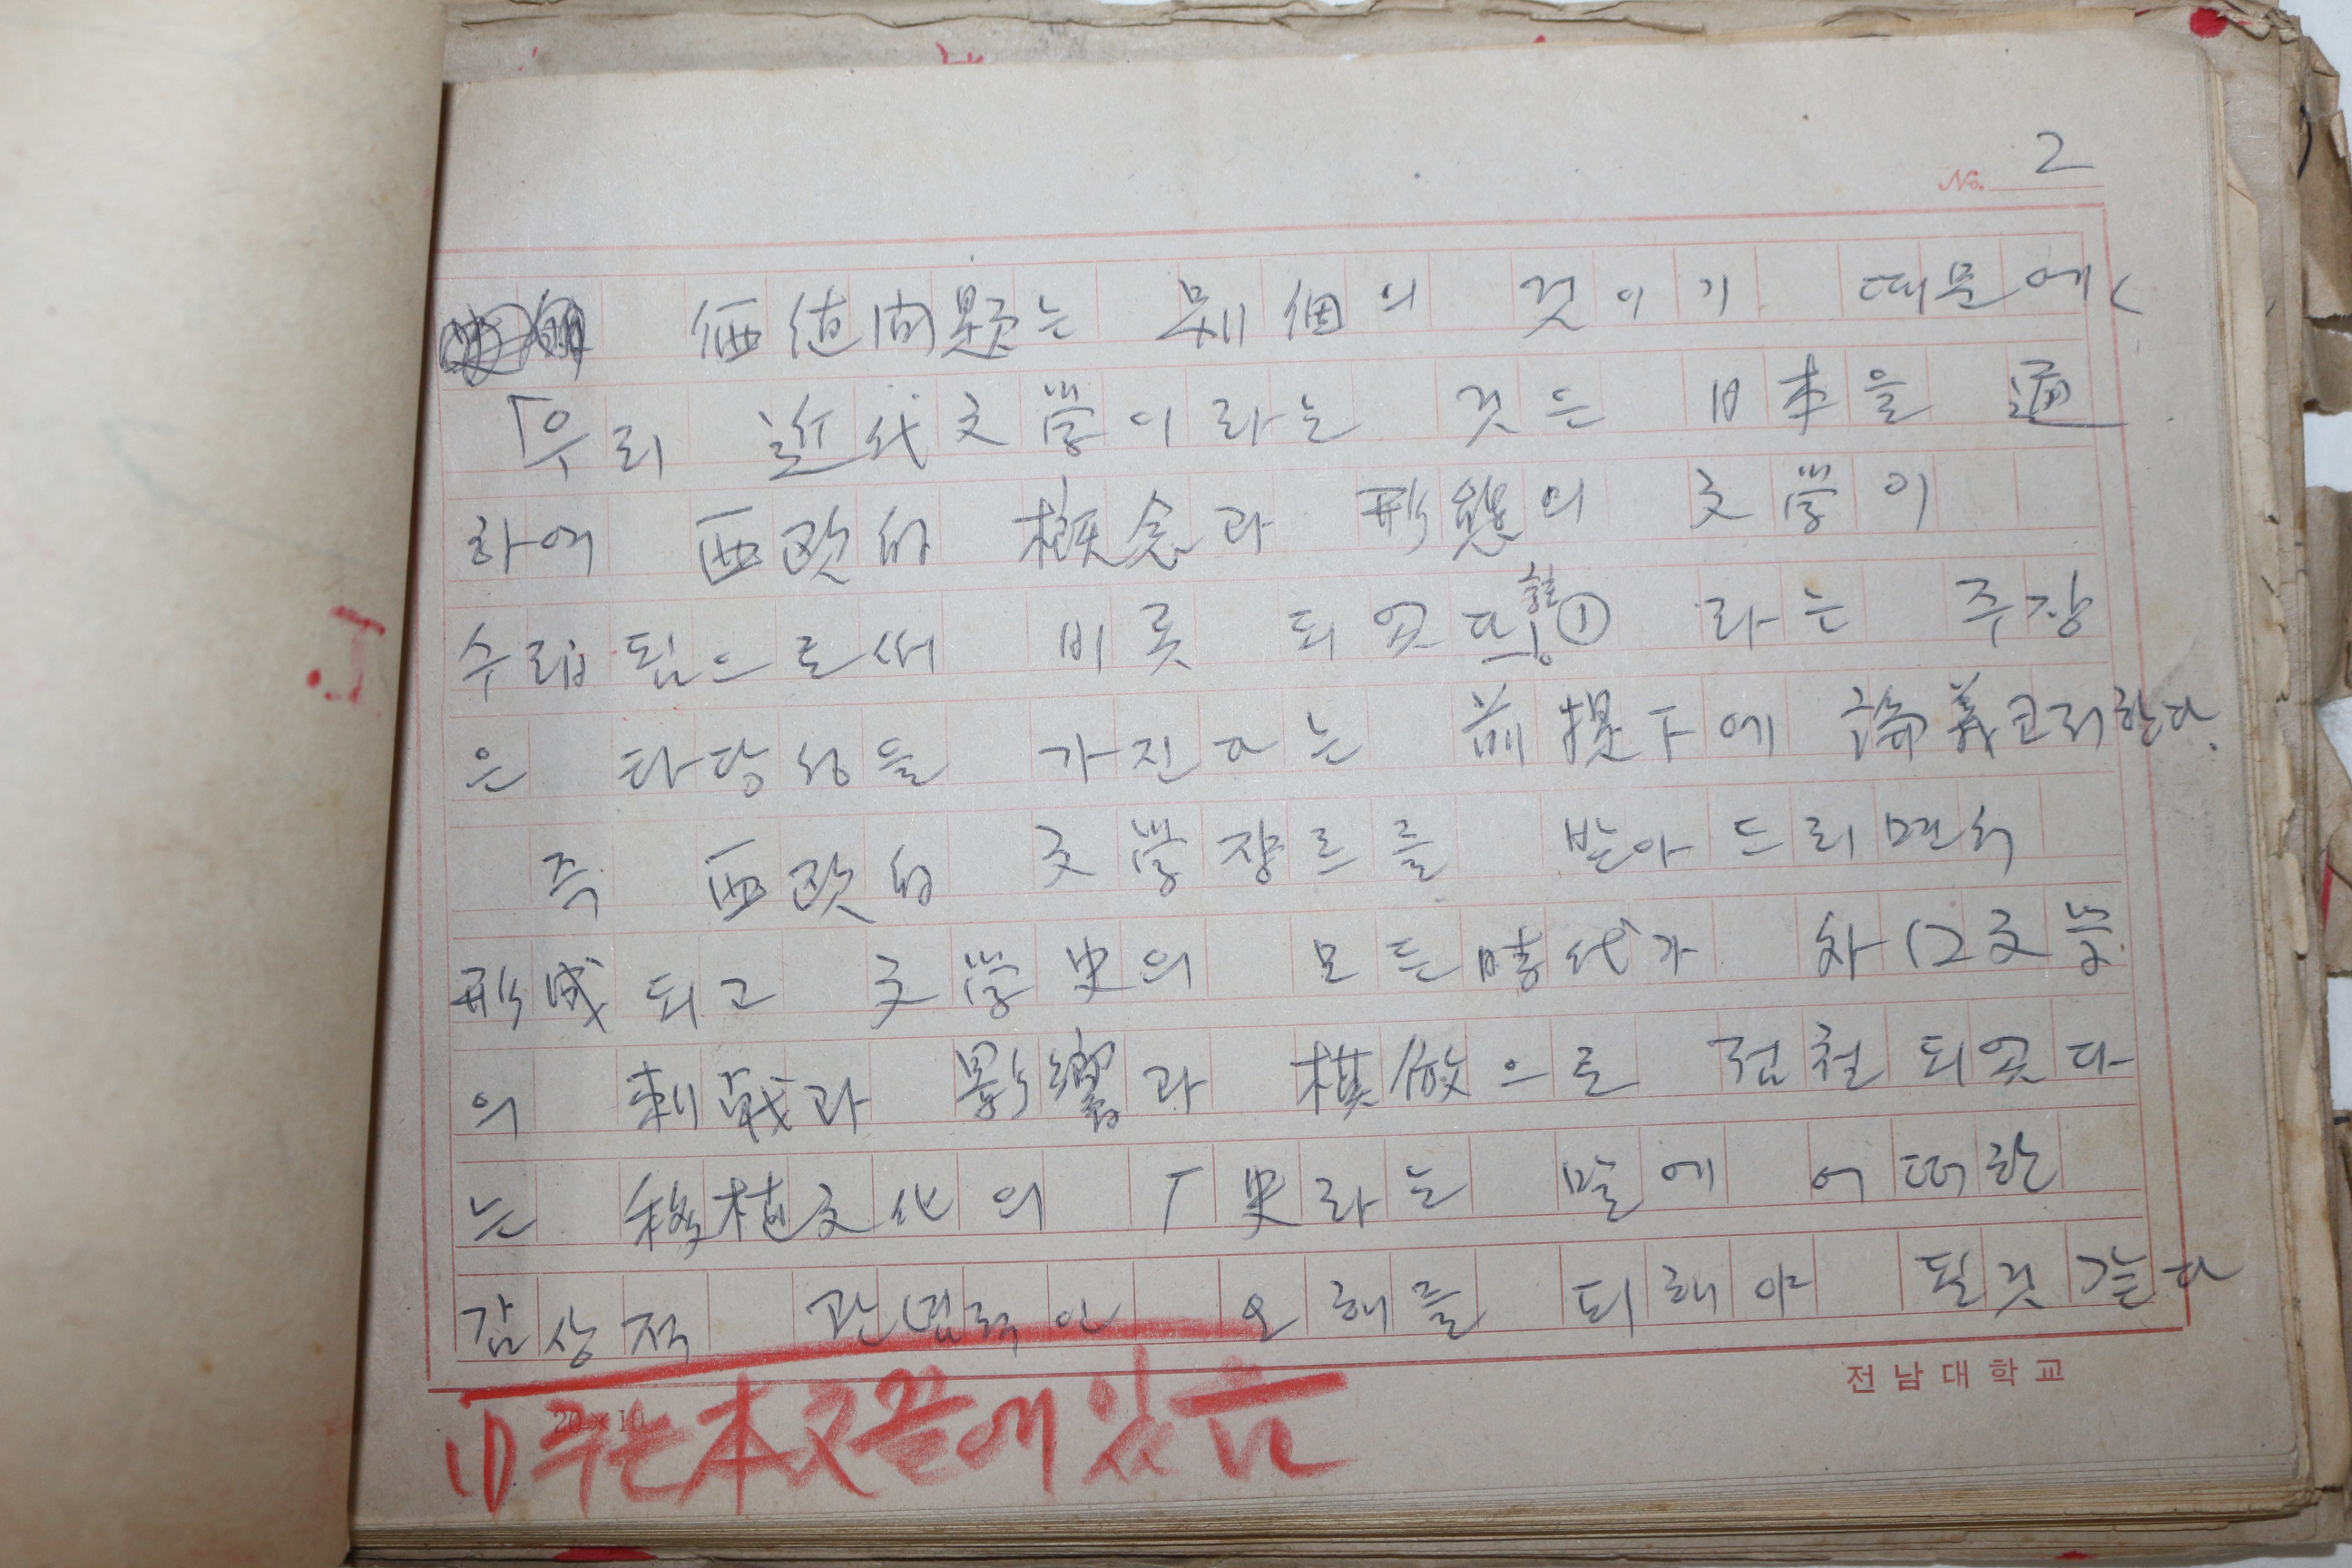 No. 2
価値問題는 別個의 것이기 때문에
「우리 近代文学이라는 것은 日本을 通
하여 西欧的 概念과 形態의 文学이
수립됨으로써 비롯 되였다」 註① 라는 주장
은 타당성을 가진다는 前提下에 論義코저한다.
즉 西欧的 文学쟝르를 받아드리면서
形成되고 文学史의 모든 時代가 外国文学
의 刺戟과 影響과 模倣으로 점철되였다
는 移植文化의 厂史라는 말에 어떠한
감상적 관념적인 오해를 피해야 될것 같다
전남대학교
20×10
(1) 주는 本文끝에 있음